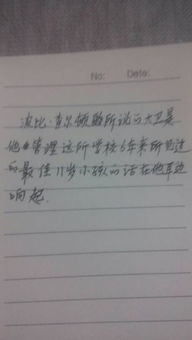 No: Date:
波比·查尔顿所说的大卫是
他管理这所学校6年来所见过
的最佳11岁小孩的话在他耳边
响起.